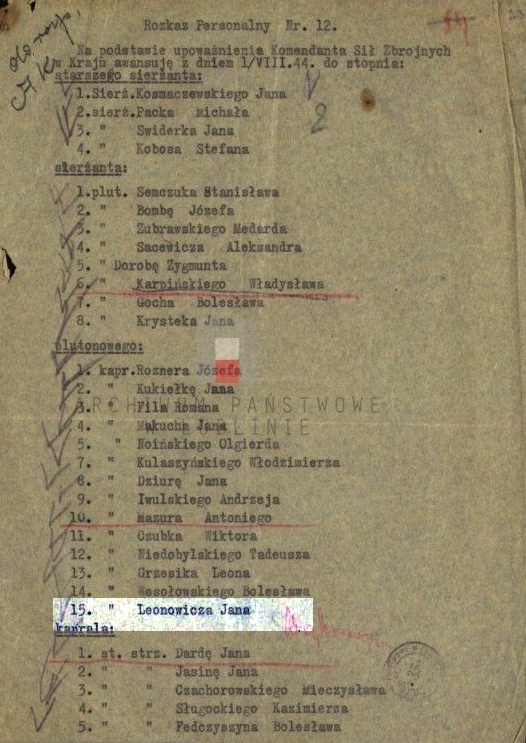 Rozkaz Personalny Nr. 12.
Na podstawie upoważnienia Komendanta Sił Zbrojnych
w Kraju awansuję z dniem 1/VIII.44. do stopnia:
starszego sierżanta:
1.Sierż.Kosmaczewskiego Jana
2.sierż.Packa Michała
3. " Swiderka Jana
4. " Kobosa Stefana
2
sierżanta:
1.plut. Semczuka Stanisława
2. " Bombę Józefa
3. " Zubrawskiego Medarda
4. " Sacewicza Aleksandra
5. " Dorobę Zygmunta
6. " Karpińskiego Władysława
7. " Gocha Bolesława
8. " Krysteka Jana
plutonowego:
1. kapr.Roznera Józefa
2. " Kukiełkę Jana
3. " Fila Romana
ARCHIWUM PAŃSTWOWE
4. " Makucha Jana
W LUBLINIE
5. " Noińskiego Olgierda
7. " Kulaszyńskiego Włodzimierza
8. " Dziurę Jana
9. " Iwulskiego Andrzeja
10. " Mazura Antoniego
11. " Czubka Wiktora
12. " Niedobylskiego Tadeusza
13. " Grzesika Leona
14. " Wesołowskiego Bolesława
15. " Leonowicza Jana
kaprala:
1. st. strz. Dardę Jana
2. " " Jasinę Jana
3. " " Czachorowskiego Mieczysława
4. " " Sługockiego Kazimierza
5. " " Fedczyszyna Bolesława